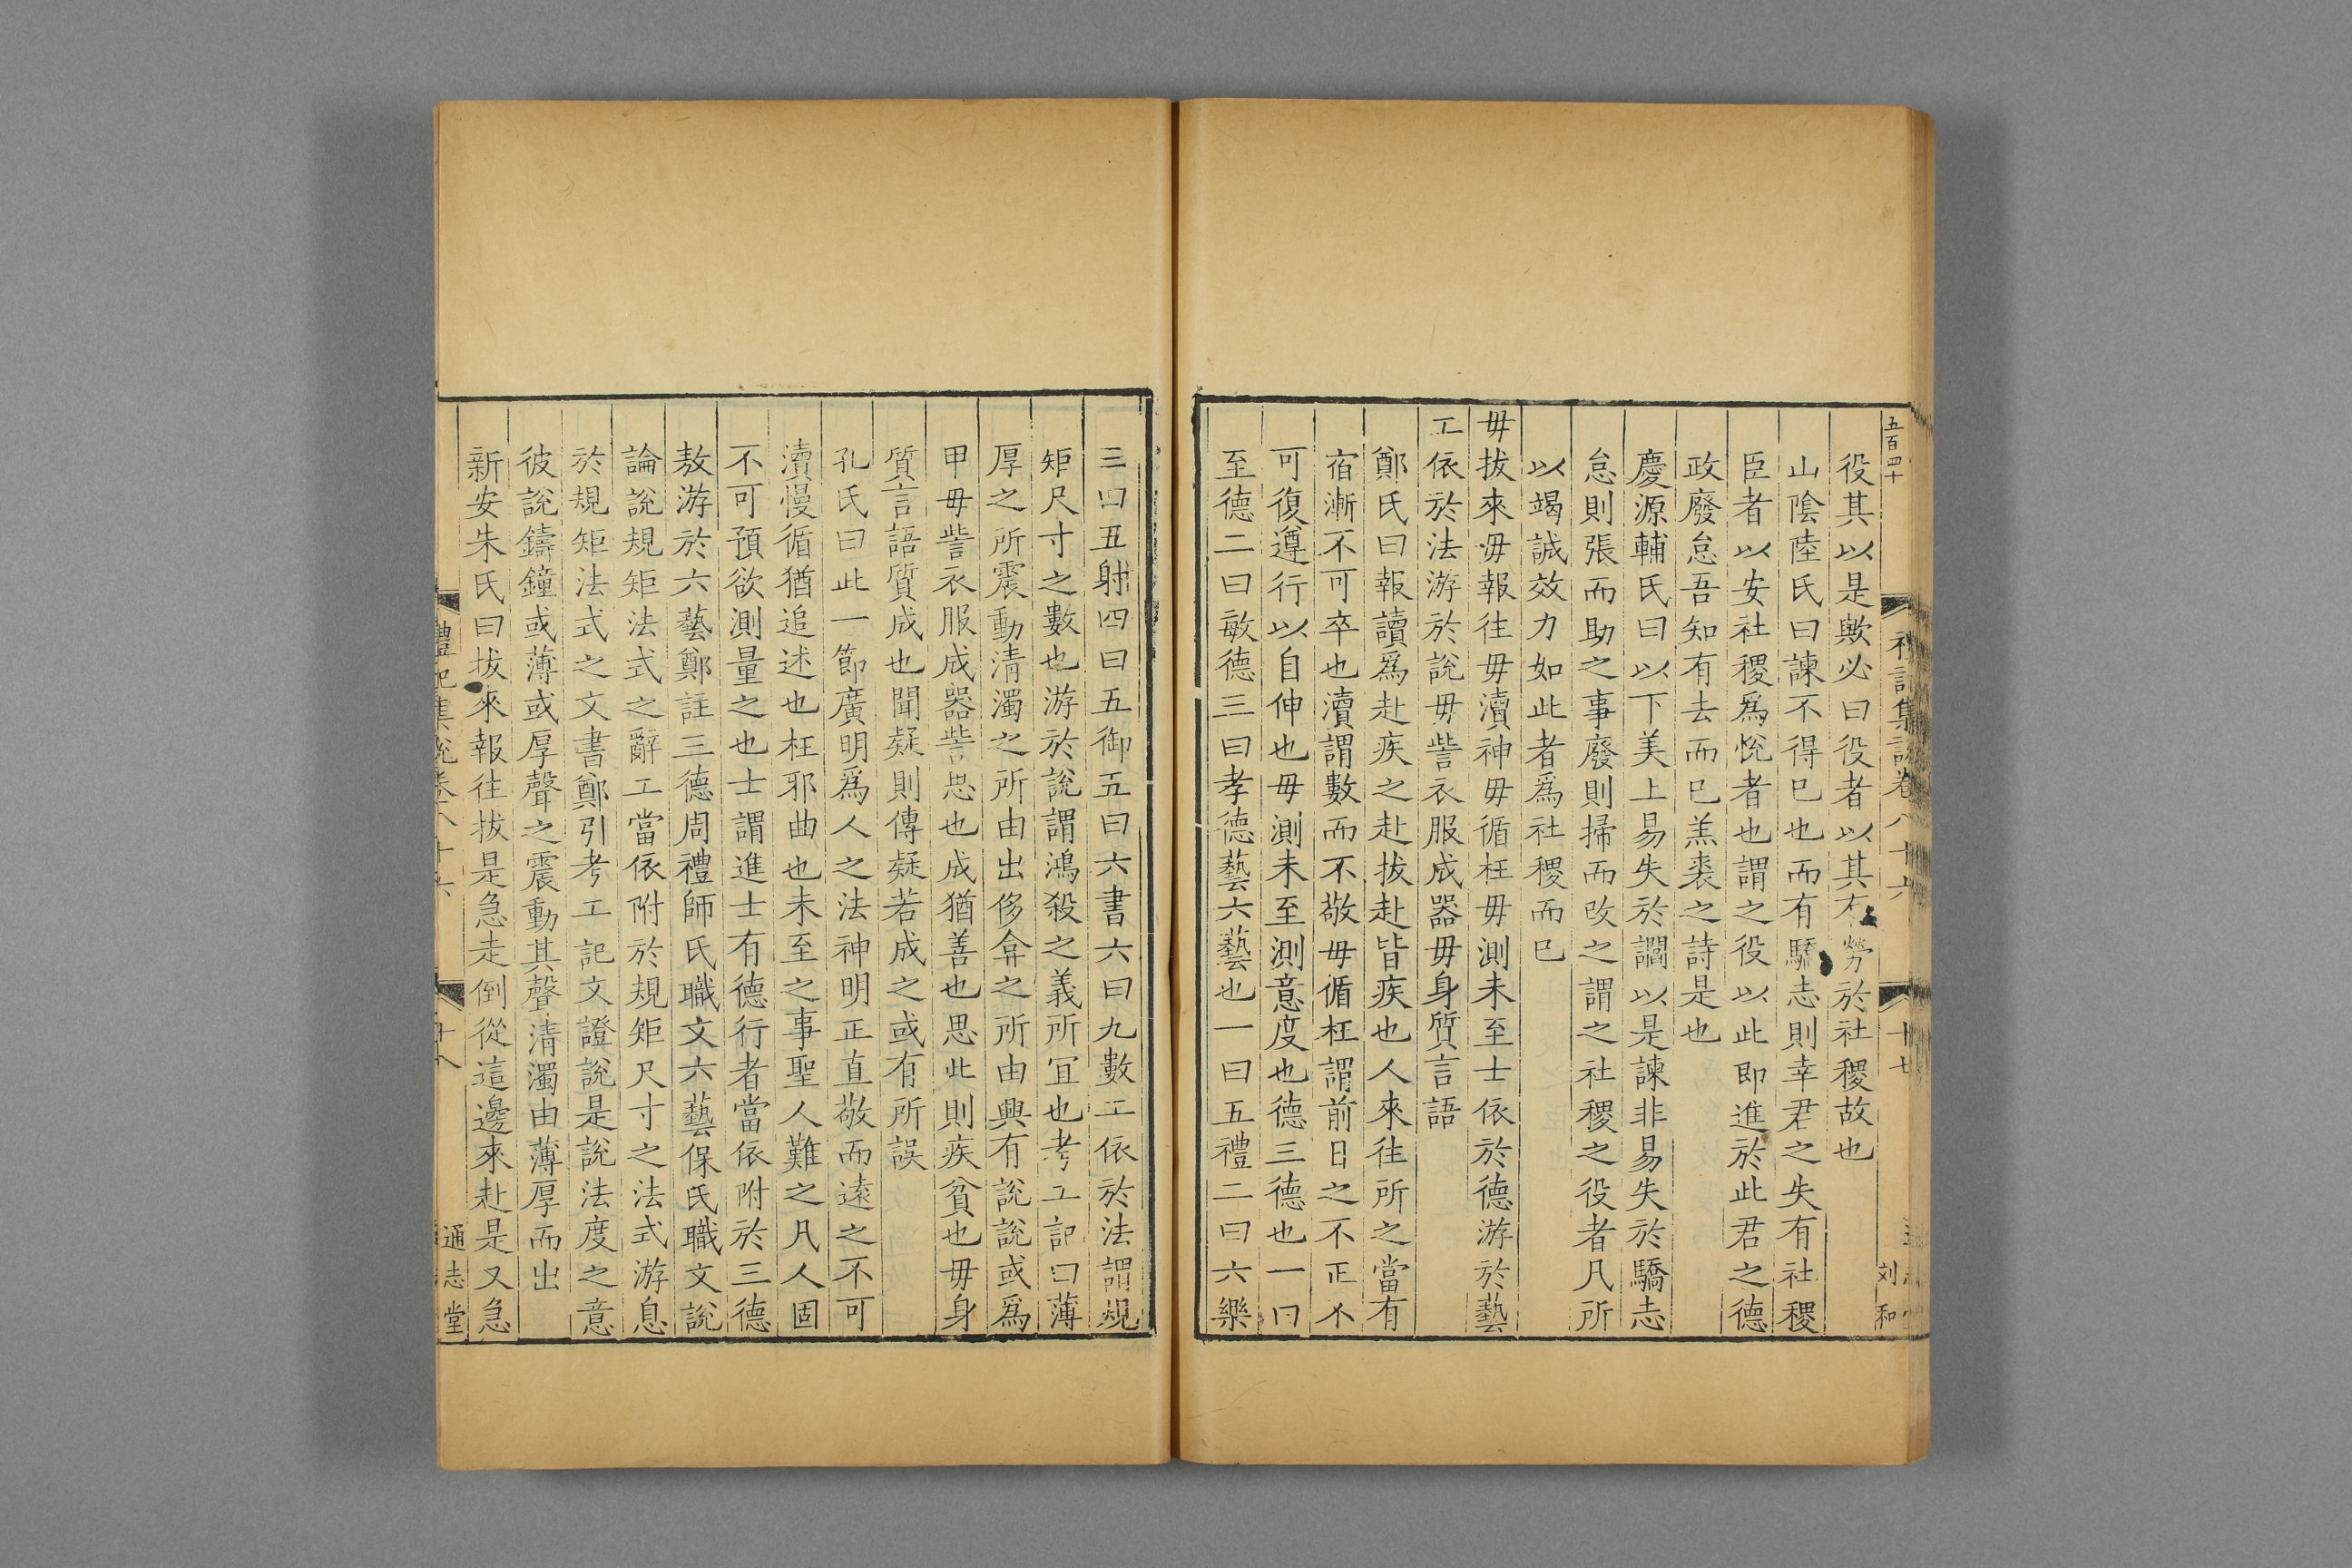 五百四十
禮記集說卷八十六
十七
刘和
役其以是歟必曰役者以其有勞於社稷故也
山陰陸氏曰諫不得已也而有驕志則幸君之失有社稷
臣者以安社稷爲悅者也謂之役以此即進於此君之德
政廢怠吾知有去而已羔裘之詩是也
慶源輔氏曰以下美上易失於讇以是諫非易失於驕志
怠則張而助之事廢則掃而改之謂之社稷之役者凡所
以竭誠效力如此者爲社稷而已
毋拔來毋報往毋瀆神毋循枉毋測未至士依於德游於藝
工依於法游於說毋訾衣服成器毋身質言語
鄭氏曰報讀爲赴疾之赴拔赴皆疾也人來往所之當有
宿漸不可卒也瀆謂數而不敬毋循枉謂前日之不正不
可復遵行以自伸也毋測未至測意度也德三德也一曰
至德二曰敏德三曰孝德藝六藝也一曰五禮二曰六樂
三曰五射四曰五御五曰六書六曰九數工依於法謂規
矩尺寸之數也游於說謂鴻殺之義所宜也考工記曰薄
厚之所震動清濁之所由出侈弇之所由興有說說或爲
甲毋訾衣服成器訾思也成猶善也思此則疾貧也毋身
質言語質成也聞疑則傳疑若成之或有所誤
孔氏曰此一節廣明爲人之法神明正直敬而遠之不可
瀆慢循猶追述也枉邪曲也未至之事聖人難之凡人固
不可預欲測量之也士謂進士有德行者當依附於三德
敖游於六藝鄭註三德周禮師氏職文六藝保氏職文說
論說規矩法式之辭工當依附於規矩尺寸之法式游息
於規矩法式之文書鄭引考工記文證說是說法度之意
彼說鑄鐘或薄或厚聲之震動其聲清濁由薄厚而出
新安朱氏曰拔來報往拔是急走倒從這邊來赴是又急
禮記集說卷八十六
十八
通志堂